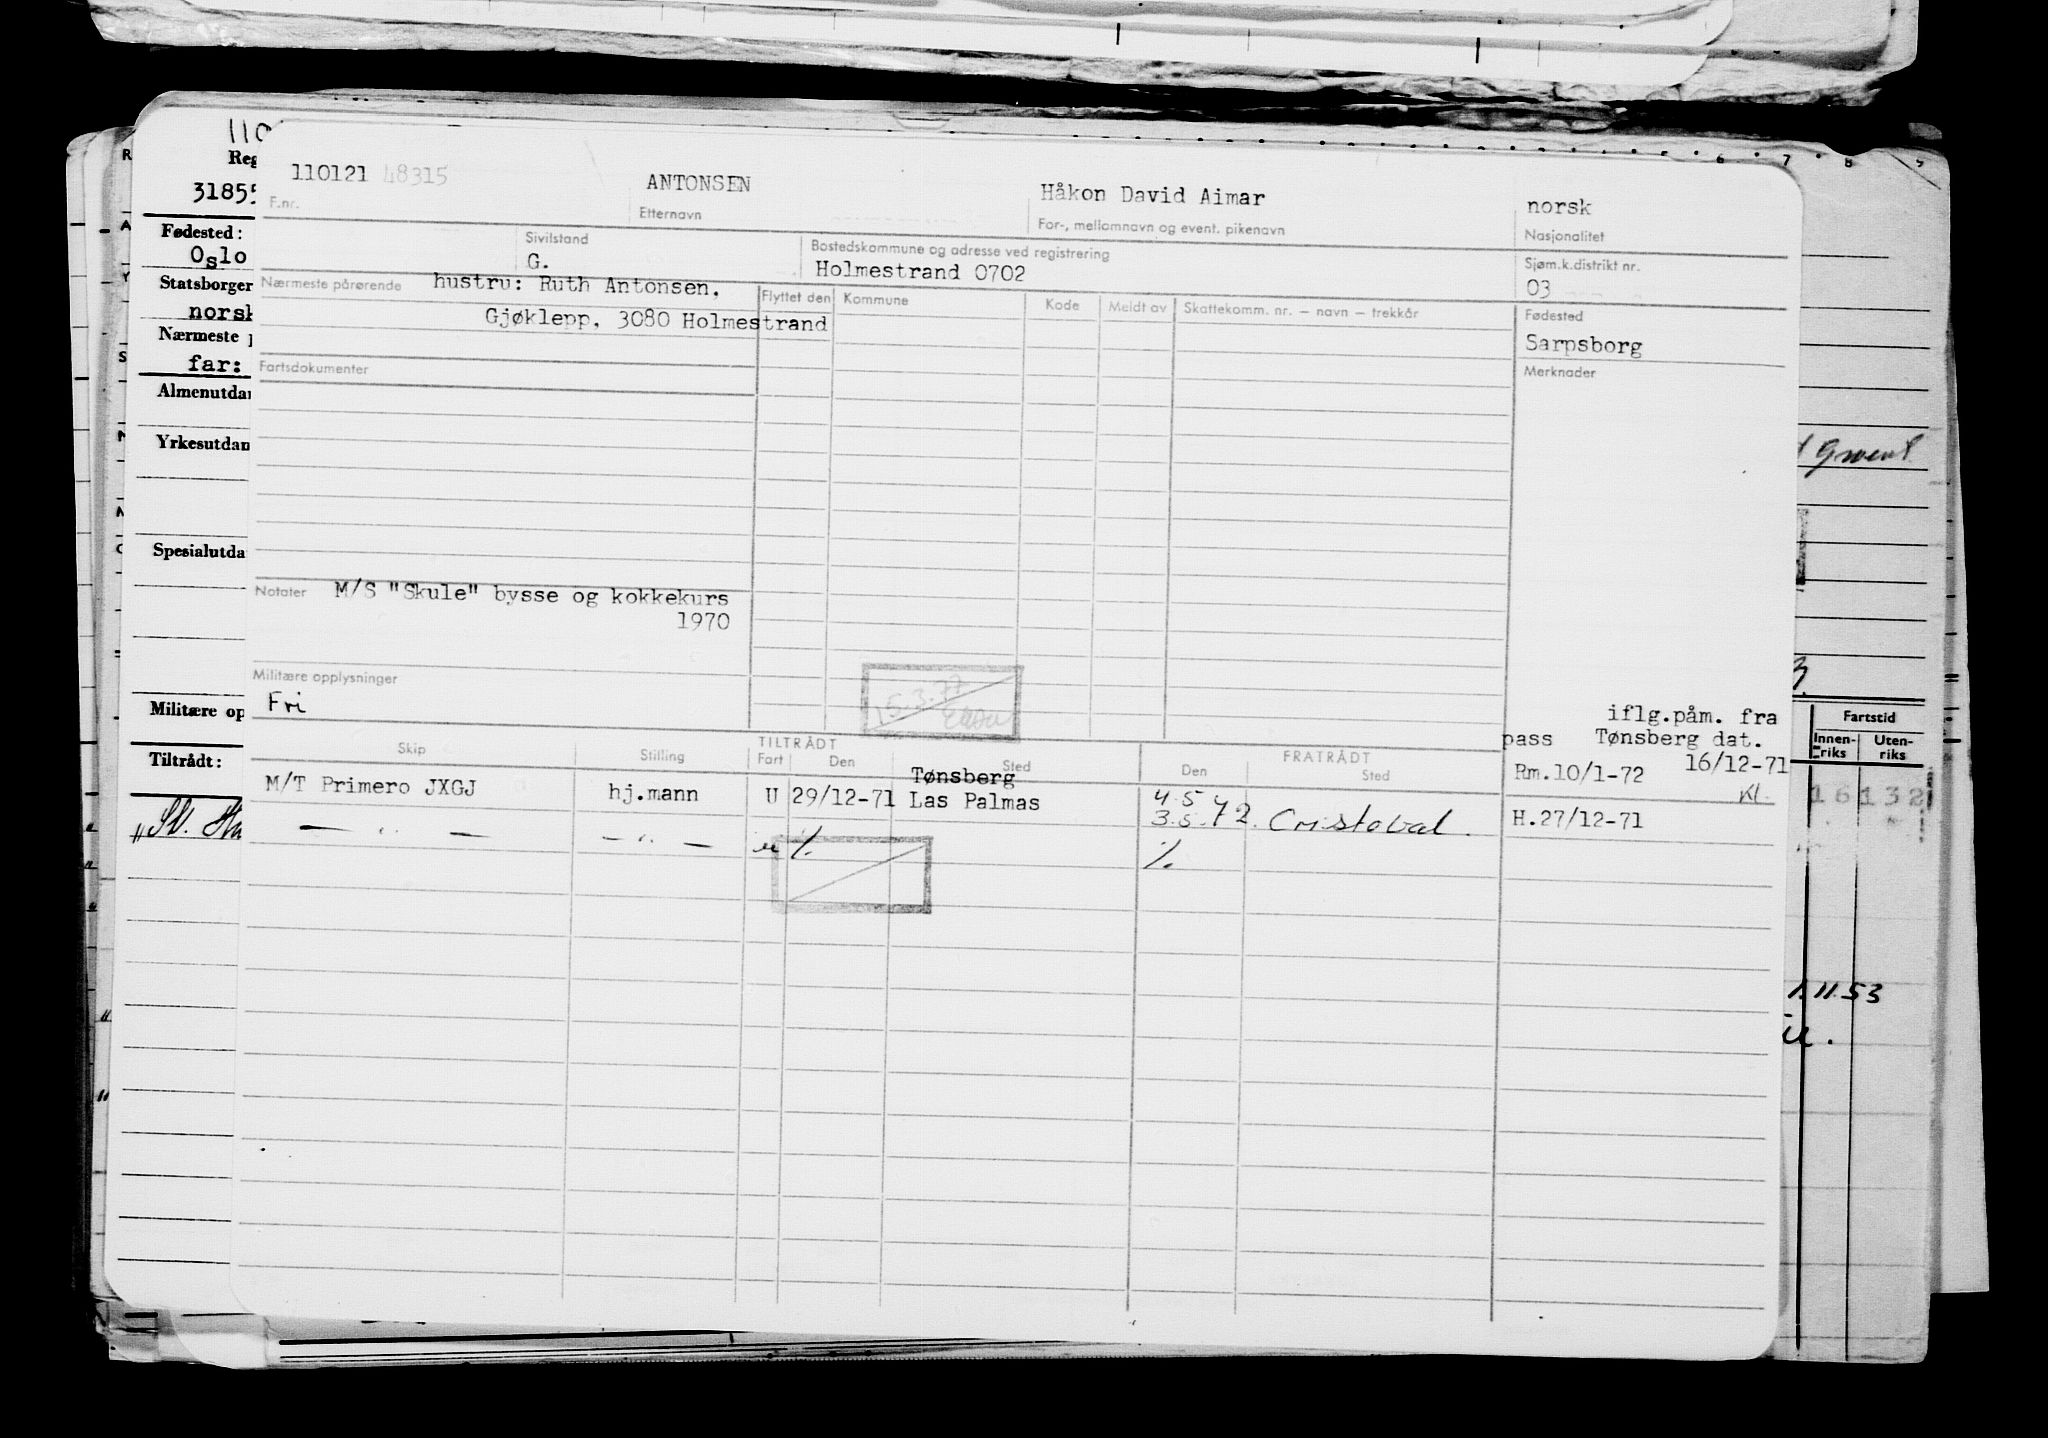 110121 48315
ANTONSEN
Håkon David Aimar
norsk
F.nr.
Etternavn
For-, mellomnavn og event. pikenavn
Nasjonalitet
Sivilstand
G.
Bostedskommune og adresse ved registrering
Holmestrand 0702
Sjøm.k.distrikt nr.
03
Nærmeste pårørende hustru: Ruth Antonsen,
Gjøklepp, 3080 Holmestrand
Flyttet den
Kommune
Kode
Meldt av
Skattekomm. nr. — navn — trekkår
Fødested
Sarpsborg
Fartsdokumenter
Merknader
Notater M/S "Skule" bysse og kokkekurs
1970
Militære opplysninger
Fri
15.3.77
iflg.påm. fra
pass Tønsberg dat.
16/12-71
Rm.10/1-72
Kl.
H.27/12-71
TILTRÅDT
FRATRÅDT
Skip
Stilling
Fart
Den
Sted
Den
Sted
M/T Primero JXGJ
hj.mann
U
29/12-71
Tønsberg
Las Palmas
4.5
3.5.72. Cristobal.
— " —
— " —
u
%
%
110
Reg
31855
Fødested:
Oslo
Statsborger
norsk
Nærmeste p
far:
Almenutdan
Yrkesutdan
Spesialutda
Militære op
Tiltrådt:
5 6 7 8 9
Fartstid
Innen-
riks
Uten-
riks
16 132
1.11.53